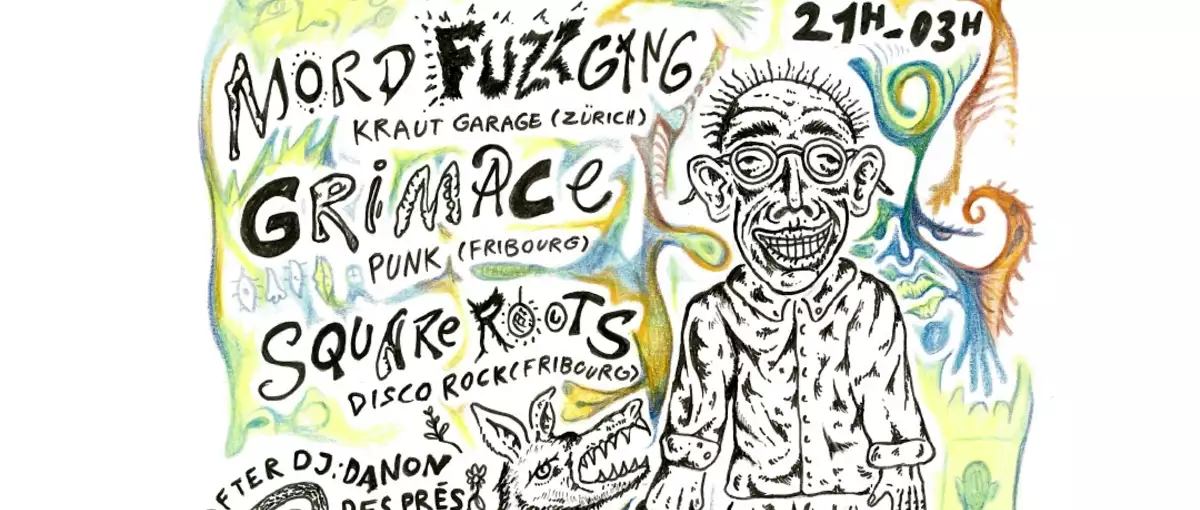 21H-03H
MORD FUZZ GANG
KRAUT GARAGE (ZÜRICH)
GRiMACe
PUNK (FRIBOURG)
SQUARe ROOTS
DISCO ROCK (FRIBOURG)
AFTER DJ: DANON
DES PRÉS